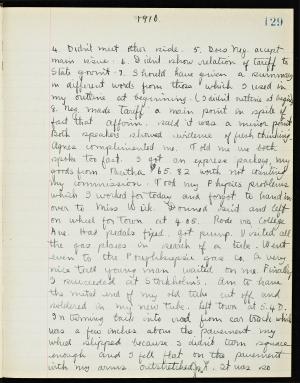 1910.
129
4. Didn't meet other side. 5. Does Neg. accept
main issue. 6. Didn't show relation of tariff to
State govmt. 7. Should have given a summary
in different words from those which I used in
my outline at beginning. (I didn't outline at beginning)
8. Neg. made tariff a main point in spite of
fact that affirm. said it was a minor point.
Both speakers showed evidence of fresh thinking.
Agnes complimented me. Told me we both
spoke too fast. I got an express package, my
goods from $65.82 worth not counting
my commission. Took my Physics problems
which I worked for today and forgot to hand in
over to Miss Wick. Dressed and left
on wheel for town at 4.05. Rode via College
Ave. Had pedals fixed, got pump. Visited all
the gas places in search of a tube. Went
even to the Poughkeepsie gas co. A very
nice tall young man waited on me. Finally
I succeeded at Stockholm's. Am to have
the metal end of my old tube cut off and
soldered in my new tube. Left town at 5.40.
In turning back into road from car track which
was a few inches above the pavement my
wheel slipped because I didn't turn square
enough and I fell flat on the pavement
with my arms outstretched. It was so